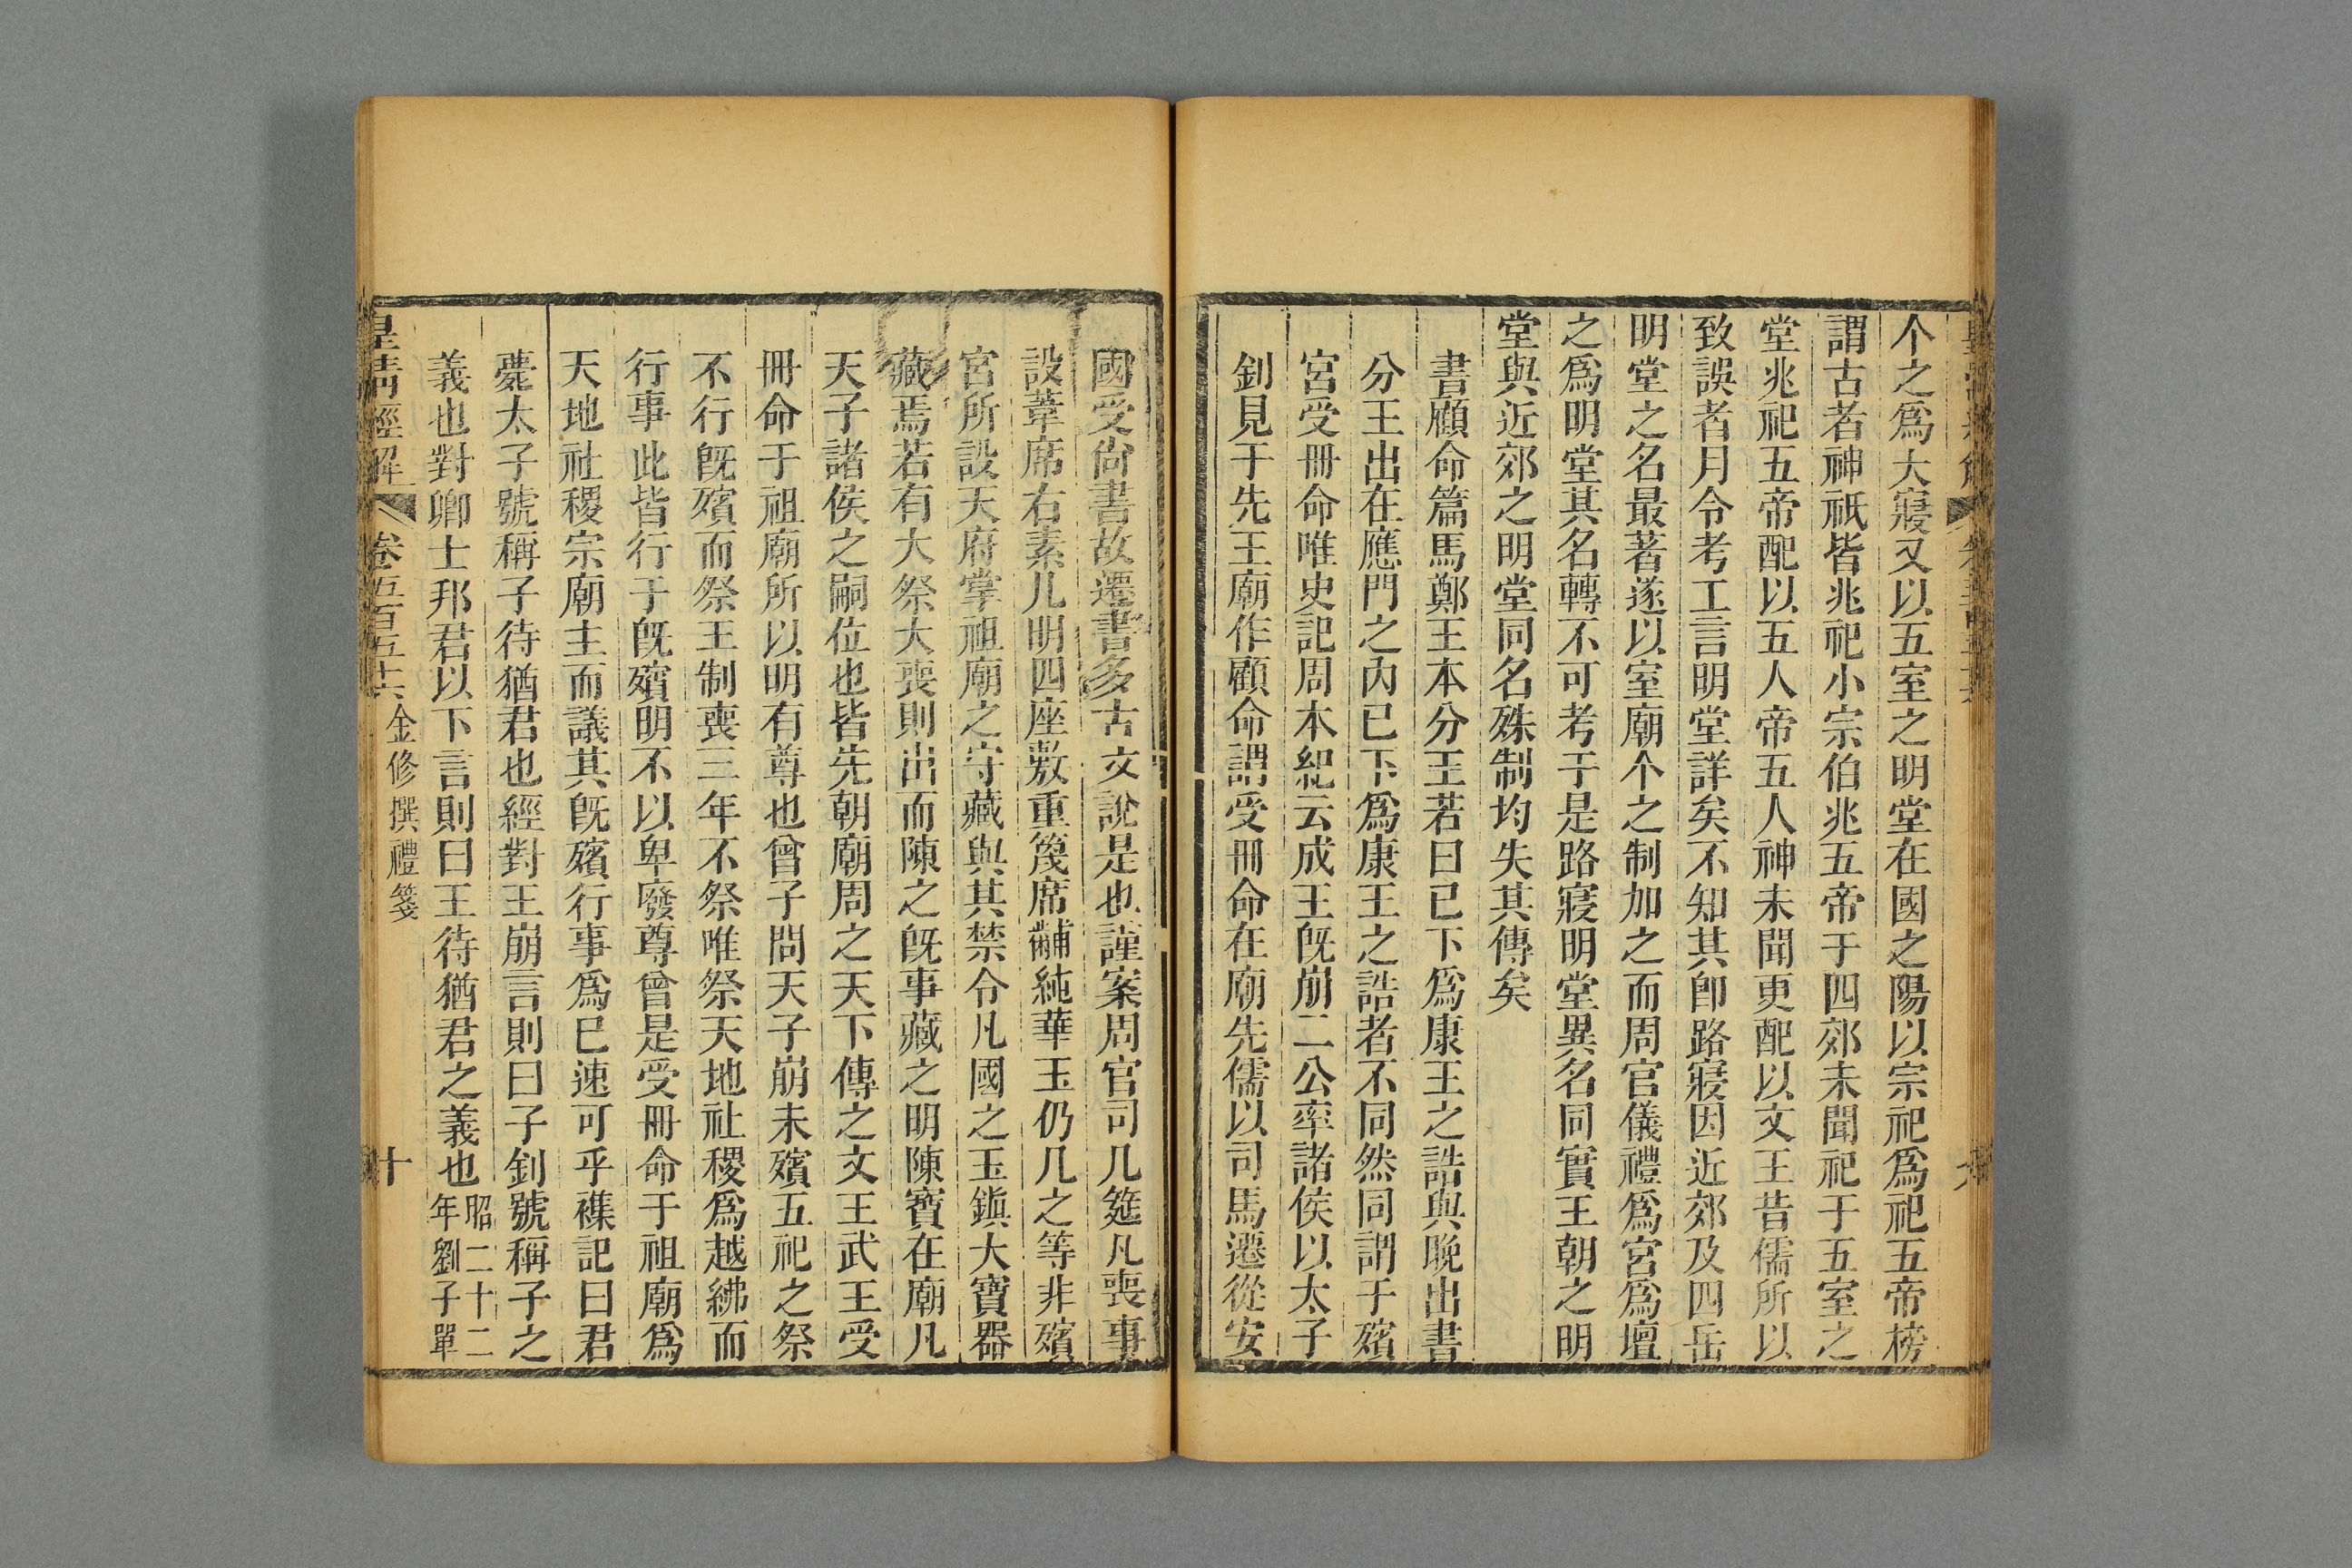 个之爲大寢又以五室之明堂在國之陽以宗祀爲祀五帝榜
謂古者神祇皆兆祀小宗伯兆五帝于四郊未聞祀于五室之
堂兆祀五帝配以五人帝五人神未聞更配以文王昔儒所以
致誤者月令考工言明堂詳矣不知其卽路寢因近郊及四岳
明堂之名最著遂以室廟个之制加之而周官儀禮爲宮爲壇
之爲明堂其名轉不可考于是路寢明堂異名同實王朝之明
堂與近郊之明堂同名殊制均失其傳矣
書顧命篇馬鄭王本分王若曰已下爲康王之誥與晚出書
分王出在應門之內已下爲康王之誥者不同然同謂于殯
宮受冊命唯史記周本紀云成王旣崩二公率諸侯以太子
釗見于先王廟作顧命謂受冊命在廟先儒以司馬遷從安
國受尙書故遷書多古文說是也謹案周官司几筵凡喪事
設葦席右素几明四座敷重篾席黼純華玉仍几之等非殯
宮所設天府掌祖廟之守藏與其禁令凡國之玉鎭大寶器
藏焉若有大祭大喪則出而陳之旣事藏之明陳寶在廟凡
天子諸侯之嗣位也皆先朝廟周之天下傳之文王武王受
冊命于祖廟所以明有尊也曾子問天子崩未殯五祀之祭
不行旣殯而祭王制喪三年不祭唯祭天地社稷爲越紼而
行事此皆行于旣殯明不以卑廢尊曾是受冊命于祖廟爲
天地社稷宗廟主而議其旣殯行事爲已速可乎襍記曰君
薨太子號稱子待猶君也經對王崩言則曰子釗號稱子之
義也對卿士邦君以下言則曰王待猶君之義也昭二十二年劉子單
皇淸經解 卷五百五十六 金修撰禮箋 十